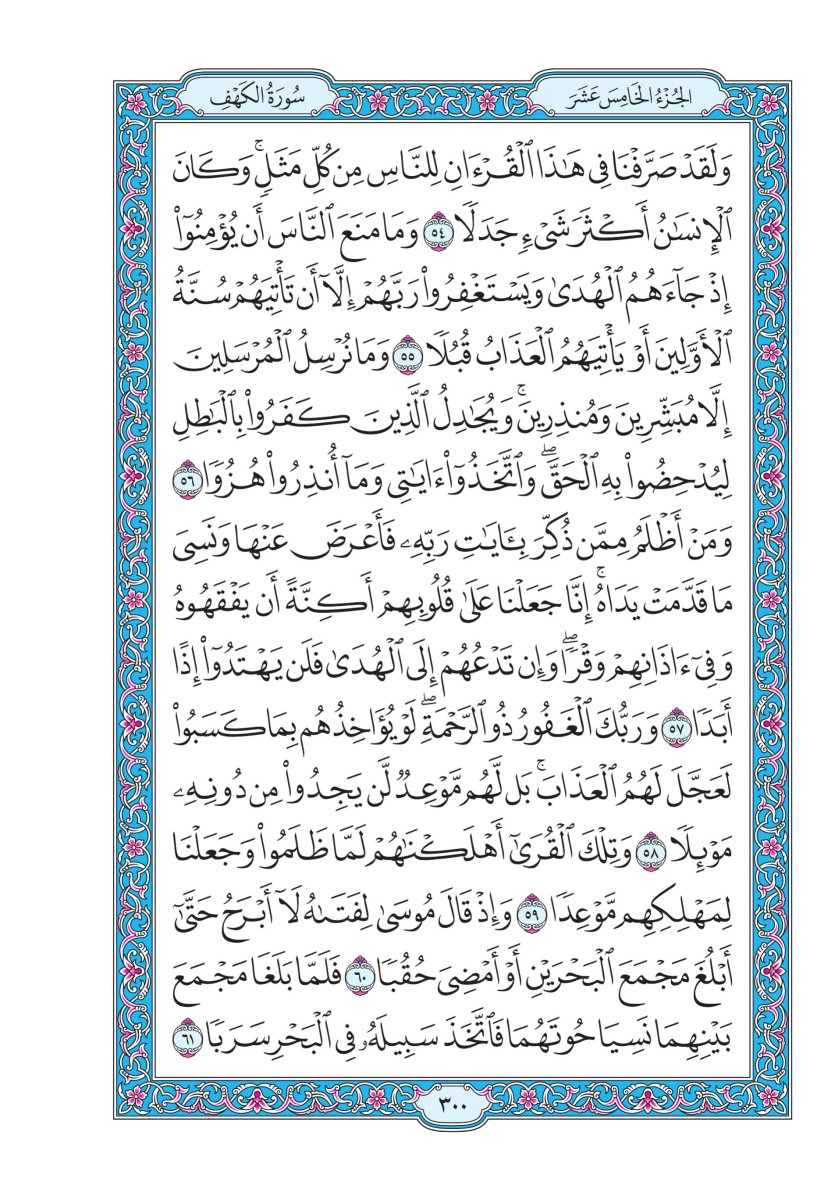 الجُزْءُ الخَامِسَ عَشَرَ
سُورَةُ الكَهْفِ
وَلَقَدْ صَرَّفْنَا فِي هَٰذَا ٱلْقُرْءَانِ لِلنَّاسِ مِن كُلِّ مَثَلٖۚ وَكَانَ
ٱلْإِنسَٰنُ أَكْثَرَ شَيْءٖ جَدَلٗا ٥٤ وَمَا مَنَعَ ٱلنَّاسَ أَن يُؤْمِنُوٓاْ
إِذْ جَآءَهُمُ ٱلْهُدَىٰ وَيَسْتَغْفِرُواْ رَبَّهُمْ إِلَّآ أَن تَأْتِيَهُمْ سُنَّةُ
ٱلْأَوَّلِينَ أَوْ يَأْتِيَهُمُ ٱلْعَذَابُ قُبُلٗا ٥٥ وَمَا نُرْسِلُ ٱلْمُرْسَلِينَ
إِلَّا مُبَشِّرِينَ وَمُنذِرِينَۚ وَيُجَٰدِلُ ٱلَّذِينَ كَفَرُواْ بِٱلْبَٰطِلِ
لِيُدْحِضُواْ بِهِ ٱلْحَقَّۖ وَٱتَّخَذُوٓاْ ءَايَٰتِي وَمَآ أُنذِرُواْ هُزُوٗا ٥٦
وَمَنْ أَظْلَمُ مِمَّن ذُكِّرَ بِـَٔايَٰتِ رَبِّهِۦ فَأَعْرَضَ عَنْهَا وَنَسِيَ
مَا قَدَّمَتْ يَدَاهُۚ إِنَّا جَعَلْنَا عَلَىٰ قُلُوبِهِمْ أَكِنَّةً أَن يَفْقَهُوهُ
وَفِيٓ ءَاذَانِهِمْ وَقْرٗاۖ وَإِن تَدْعُهُمْ إِلَى ٱلْهُدَىٰ فَلَن يَهْتَدُوٓاْ إِذًا
أَبَدٗا ٥٧ وَرَبُّكَ ٱلْغَفُورُ ذُو ٱلرَّحْمَةِۖ لَوْ يُؤَاخِذُهُم بِمَا كَسَبُواْ
لَعَجَّلَ لَهُمُ ٱلْعَذَابَۚ بَل لَّهُم مَّوْعِدٞ لَّن يَجِدُواْ مِن دُونِهِۦ
مَوْئِلٗا ٥٨ وَتِلْكَ ٱلْقُرَىٰٓ أَهْلَكْنَٰهُمْ لَمَّا ظَلَمُواْ وَجَعَلْنَا
لِمَهْلِكِهِم مَّوْعِدٗا ٥٩ وَإِذْ قَالَ مُوسَىٰ لِفَتَىٰهُ لَآ أَبْرَحُ حَتَّىٰٓ
أَبْلُغَ مَجْمَعَ ٱلْبَحْرَيْنِ أَوْ أَمْضِيَ حُقُبٗا ٦٠ فَلَمَّا بَلَغَا مَجْمَعَ
بَيْنِهِمَا نَسِيَا حُوتَهُمَا فَٱتَّخَذَ سَبِيلَهُۥ فِي ٱلْبَحْرِ سَرَبٗا ٦١
٣٠٠